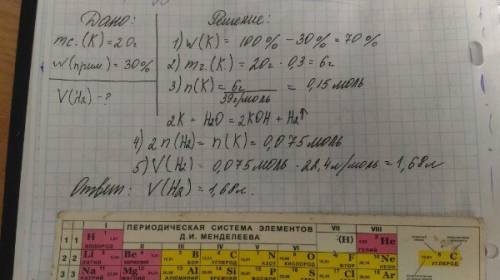 Дано:
mс.(K)=20г
w(прим.)=30%
V(H2)-?
Решение:
1) w(K)= 100% -30%=70%
2) mг.(K)=20г·0,3=6г
3) n(K)= 6г/39г/моль = 0,15моль
2K + H2O = 2KOH + H2↑
4) 2n(H2)= n(K)=0,075моль
5) V(H2)=0,075моль·22,4л/моль=1,68л
Ответ: V(H2)=1,68л.
ПЕРИОДИЧЕСКАЯ СИСТЕМА ЭЛЕМЕНТОВ
Д.И. МЕНДЕЛЕЕВА
I II III IV V VI VII VIII
1 1 H (H) He
ВОДОРОД ГЕЛИЙ
2 2 Li Be B C N O F Ne
ЛИТИЙ БОР УГЛЕРОД АЗОТ НЕОН
3 3 Na Mg Al Si P S Cl Ar
C
УГЛЕРОД